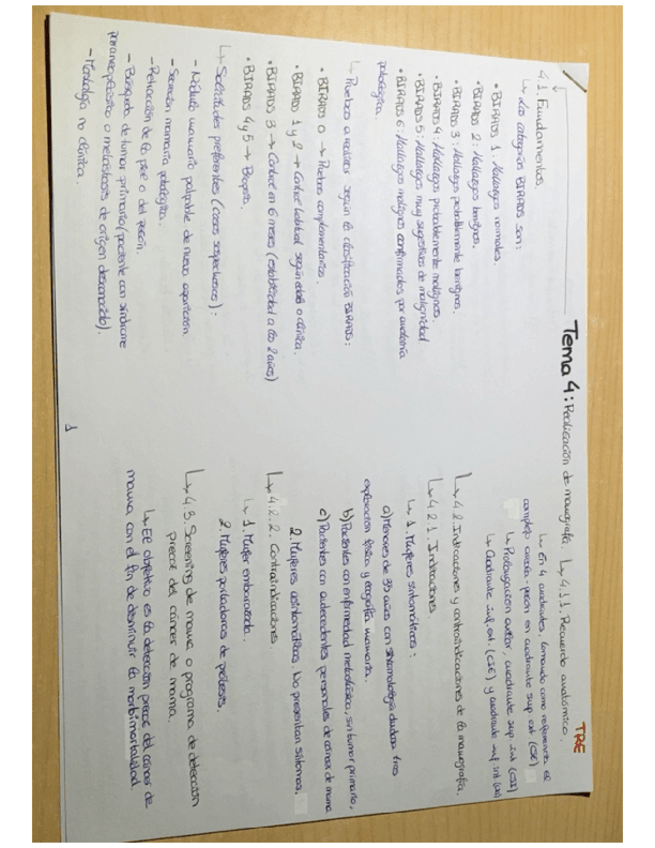 TRE
Tema 4: Realización de mamografía.
4.1. Fundamentos.
↳ Las categorías BIRADS son:
• BIRADS 1: Hallazgos normales.
• BIRADS 2: Hallazgos benignos.
• BIRADS 3: Hallazgos probablemente benignos.
• BIRADS 4: Hallazgos probablemente malignos.
• BIRADS 5: Hallazgos muy sugestivos de malignidad
• BIRADS 6: Hallazgos malignos confirmados por anatomía
patológica.
↳ Pruebas a realizar según la clasificación BIRADS:
• BIRADS 0 → Pruebas complementarias.
• BIRADS 1 y 2 → Control habitual según edad o clínica.
• BIRADS 3 → Control en 6 meses (estabilidad a los 2 años)
• BIRADS 4 y 5 → Biopsia.
↳ Solicitudes preferentes (casos sospechosos):
- Nódulo mamario palpable de nueva aparición.
- Secreción mamaria patológica.
- Retracción de la piel o del pezón.
- Búsqueda de tumor primario (paciente con síndrome
paraneoplásico o metástasis de origen desconocido).
- Mastalgia no clínica.
1
↳ 4.1.1. Recuerdo anatómico.
↳ En 4 cuadrantes, tomando como referencia el
complejo areola-pezón en cuadrante sup ext (CSE)
↳ Prolongación axilar, cuadrante sup int (CSI)
↳ Cuadrante inf ext. (CIE) y cuadrante inf int (CII)
↳ 4.2. Indicaciones y contraindicaciones de la mamografía.
↳ 4.2.1. Indicaciones.
↳ 1. Mujeres sintomáticas:
a) Menores de 35 años con sintomatología dudosa tras
exploración física y ecografía mamaria.
b) Pacientes con enfermedad metastásica, sin tumor primario.
c) Pacientes con antecedentes personales de cáncer de mama
2. Mujeres asintomáticas. No presentan síntomas.
↳ 4.2.2. Contraindicaciones.
↳ 1. Mujer embarazada.
2. Mujeres portadoras de prótesis.
↳ 4.3. Screening de mama o programa de detección
precoz del cáncer de mama.
↳ El objetivo es la detección precoz del cáncer de
mama con el fin de disminuir la morbimortalidad